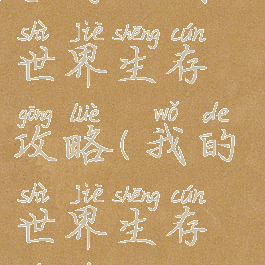 shì jiè shēng cún
世界生存
gōng lüè wǒ de
攻略(我的
shì jiè shēng cún
世界生存